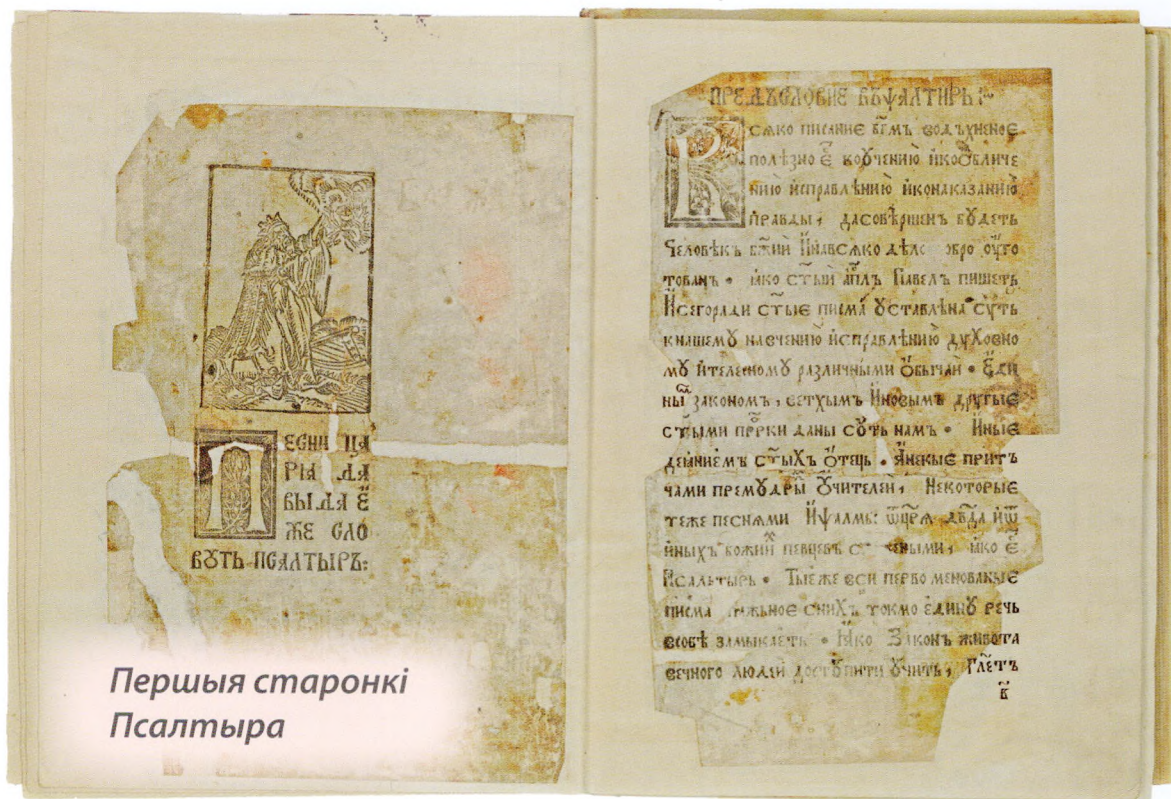 ПЕСНИ ЦА
РІА ДА
ВЫДА Е҆
ЖЕ СЛО
ВУТЬ ПСАЛТЫРЪ:
Першыя старонкі
Псалтыра
ПРЕДЪСЛОВИЕ ВЪѰАЛТИРЬ:~
Всѧко писание бг҃мъ водъхненоє
полѣзно є҆ коꙋчению ико обличе
нию исправлѣнию иконаказанию
правды, дасовѣршенъ бꙋдеть
Человѣкъ бж҃ий Инавсѧко дѣло обро ꙋ҆го
тованъ • ꙗко ст҃ый ап҃лъ Павелъ пишеть
Исегоради ст҃ыє писма ꙋставлѣна сꙋть
кнашемꙋ наꙋчению исправлѣнию дꙋховно
мꙋ ителесномꙋ различными ѻбычаи • Еди
ны закономъ, ветхымъ Иновымъ дрꙋгыє
ст҃ыми прⷪ҇рки даны сꙋть нам • Иныє
деꙗниемъ ст҃ыхъ ѻтець • Анекыє прит
чами премꙋдрыⷯ ꙋчителеи, Некоторыє
теже песнѧми Иѱалмы: ѿцр҃ѧ дв҃да иѿ
иныхъ божиⷯ певцевъ ꙗко є҆
Псалтырь • Тыєже вси первоменованыє
писма снихъ токмо единꙋ речь
всобѣ замыкаеть • Ꙗко Законъ живота
вечного людеи достꙋпити ꙋчить, Гл҃еть
в҃